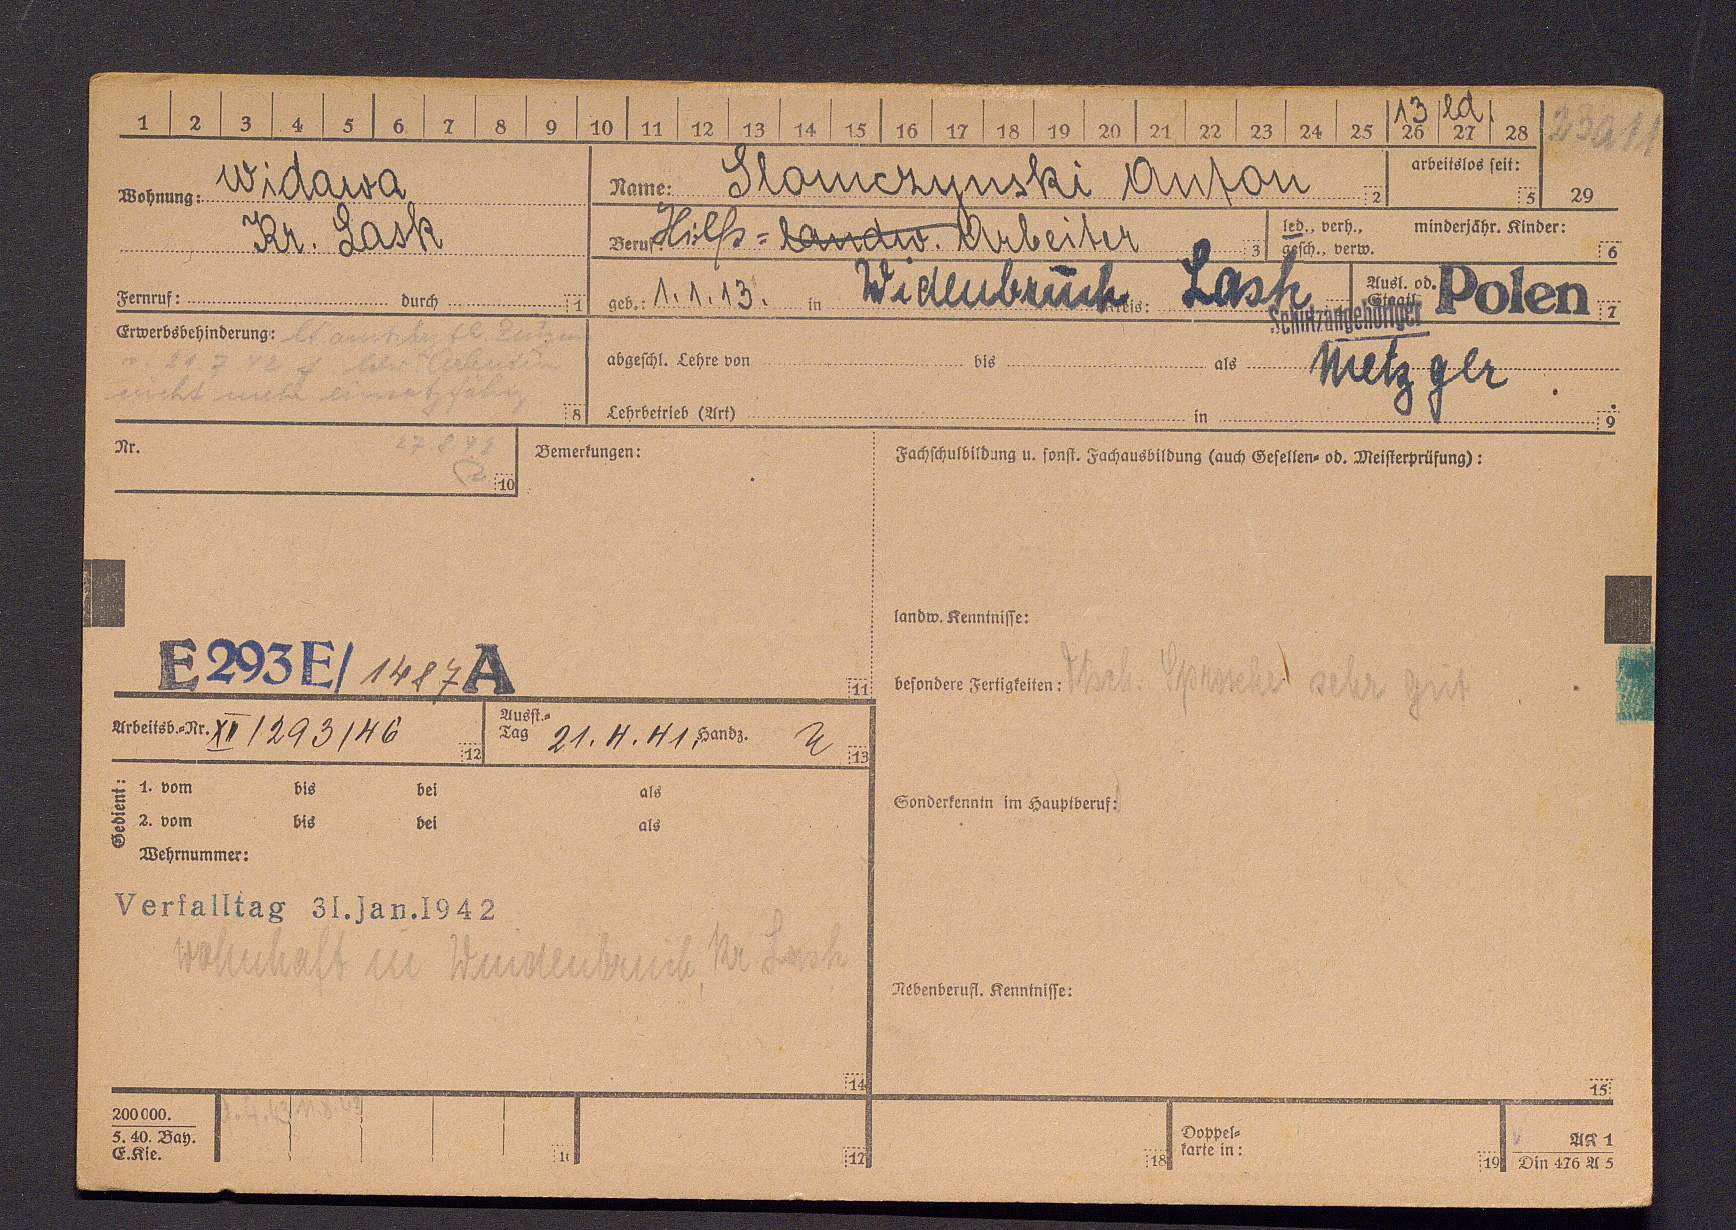 1 2 3 4 5 6 7 8 9 10 11 12 13 14 15 16 17 18 19 20 21 22 23 24 25 26 27 28
13 led.
Wohnung: Widawa
Kr. Lask
Fernruf: durch 1
Name: Slomczynski Anton 2
arbeitslos seit: 5
29
Beruf: Hilfs= landw. Arbeiter 3
led., verh., gesch., verw.
minderjähr. Kinder: 6
geb.: 1.1.13. in Widenbruch Kreis: Lask
Ausl. od. Staatl. Polen 7
Schutzangehöriger
Erwerbsbehinderung:
21.7.42
nicht mehr einsatzfähig
8
abgeschl. Lehre von bis als Metzger
Lehrbetrieb (Art) in 9
Nr. 27.8.42
10
Bemerkungen:
Fachschulbildung u. sonst. Fachausbildung (auch Gesellen= od. Meisterprüfung):
landw. Kenntnisse:
E 293 E/ 1487 A
11
besondere Fertigkeiten: Dtsch. Sprache sehr gut
Arbeitsb.=Nr. XII/293/46 12
Ausst.=Tag 21.4.41. Handz. 13
Gedient:
1. vom bis bei als
2. vom bis bei als
Wehrnummer:
Sonderkenntn im Hauptberuf:
Verfalltag 31.Jan.1942
wohnhaft in Weidenbruch, Kr. Lask
Nebenberufl. Kenntnisse:
14
15
200000.
5. 40. Bay.
E.Kie.
17
18
Doppel=
karte in:
19
AK 1
Din 476 A 5